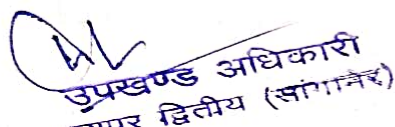 उपखण्ड अधिकारी
द्वितीय (सांगानेर)